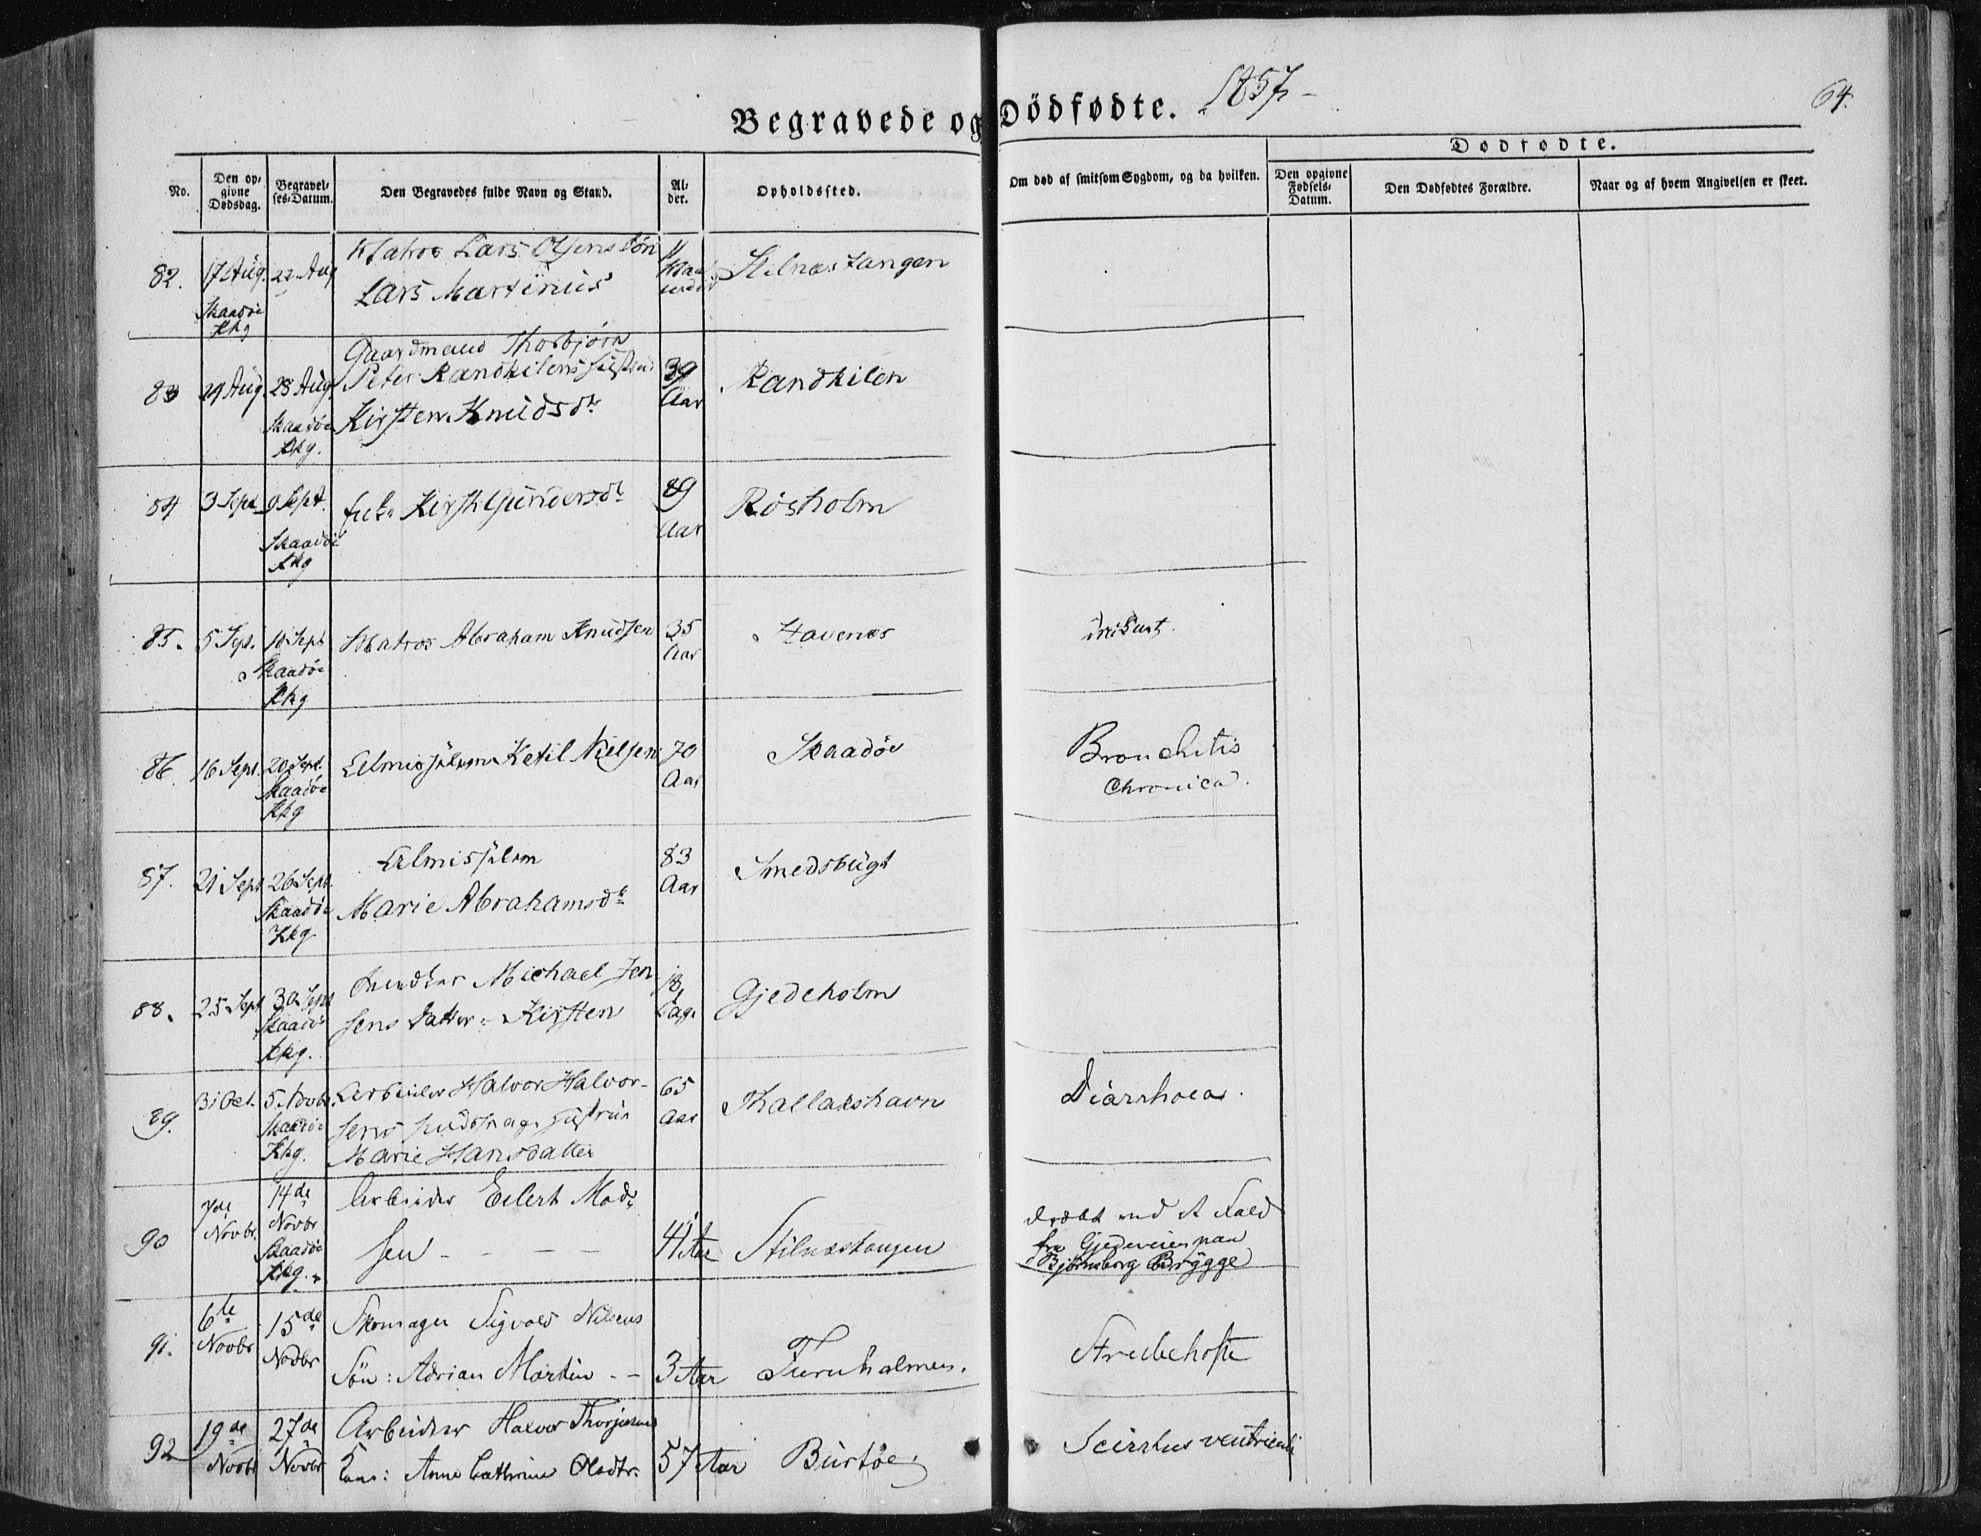 Begravede og Dödfødte. 1857 -
64.
No.
Den opgivne Dødsdag.
Begravelses-Datum.
Den Begravedes fulde Navn og Stand.
Alder.
Opholdssted.
Om død af smitsom Sygdom, og da hvilken.
Dødfødte.
Den opgivne Fødsels-Datum.
Den Dødfødtes Forældre.
Naar og af hvem Angivelsen er skeet.
82. 17 Aug. 22 Aug Matros Lars Olsens Søn
Lars Martinius
Stilnæstangen
Skaadöe
Kkg
Gaardmand Thorbjörn
83 24 Aug. 28 Aug. Peter Randkilens Hustrue 39 Randkilen
Kirsten Knudsdr Aar
Skaadöe
Kkg.
84 3 Sept 9 Sept. Enke Kirsti Gundersdr 89 Rösholm
Aar
Skaadöe
Kkg
85. 5 Sept. 10 Sept Matros Abraham Knudsen 35 Stavenæs
Aar
Skaadöe
Kkg
86. 16 Sept. 20 Sept. Almisselem Ketil Nielsen 70 Skaadöe Bronchitis
Skaadöe Aar Chronica.
Kkg
Almisselem 83
87. 21 Sept 26 Sept. Aar Smedsbugt
Skaadöe Marie Abrahamsdr
Kkg
Michael Jen 18
88. 25 Sept 30 Sept sens Datter: Kirsten Dage Gjedeholm
Skaadöe
Kkg.
31 Oct. 5 Novbr. Arbeider Halvor Halvor- 65 Thallakshavn Diarrhoea.
89. Skaadöe sens Hustrue Aar
Kkg. Marie Hansdatter
7de 14de Arbeider Eilert Mad-
90 Novbr. Novbr sen - - - - 41 Aar Stilnæstangen
Skaadöe
Kkg.
dræbt ved et Fald
fra Gjedeveien paa
Björnsborg Brygge
6te 15de Skomager Sigvald Nilsens
91. Novbr Novbr Sön: Adrian Martin - - 3 Aar Furuholmen. Strubehoste
19de 27de Arbeider Halvor Thorjusens
92 Novbr Novbr Kone: Anne Cathrine Olsdtr. 57 Aar Burtöe Scirrhus ventriculi